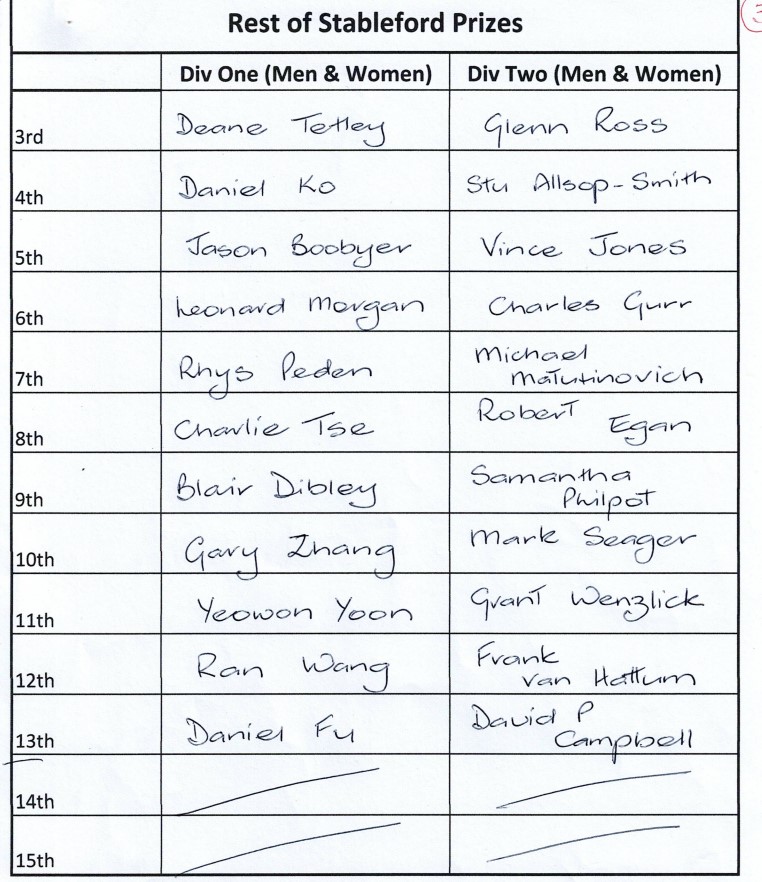 Rest of Stableford Prizes
3
Div One (Men & Women) Div Two (Men & Women)
3rd Deane Tetley Glenn Ross
4th Daniel Ko Stu Allsop-Smith
5th Jason Boobyer Vince Jones
6th Leonard Morgan Charles Gurr
7th Rhys Peden Michael
Matutinovich
8th Charlie Tse Robert
Egan
9th Blair Dibley Samantha
Philpot
10th Gary Zhang Mark Seager
11th Yeowon Yoon Grant Wenzlick
12th Ran Wang Frank
van Hattum
13th Daniel Fu David P
Campbell
14th
15th